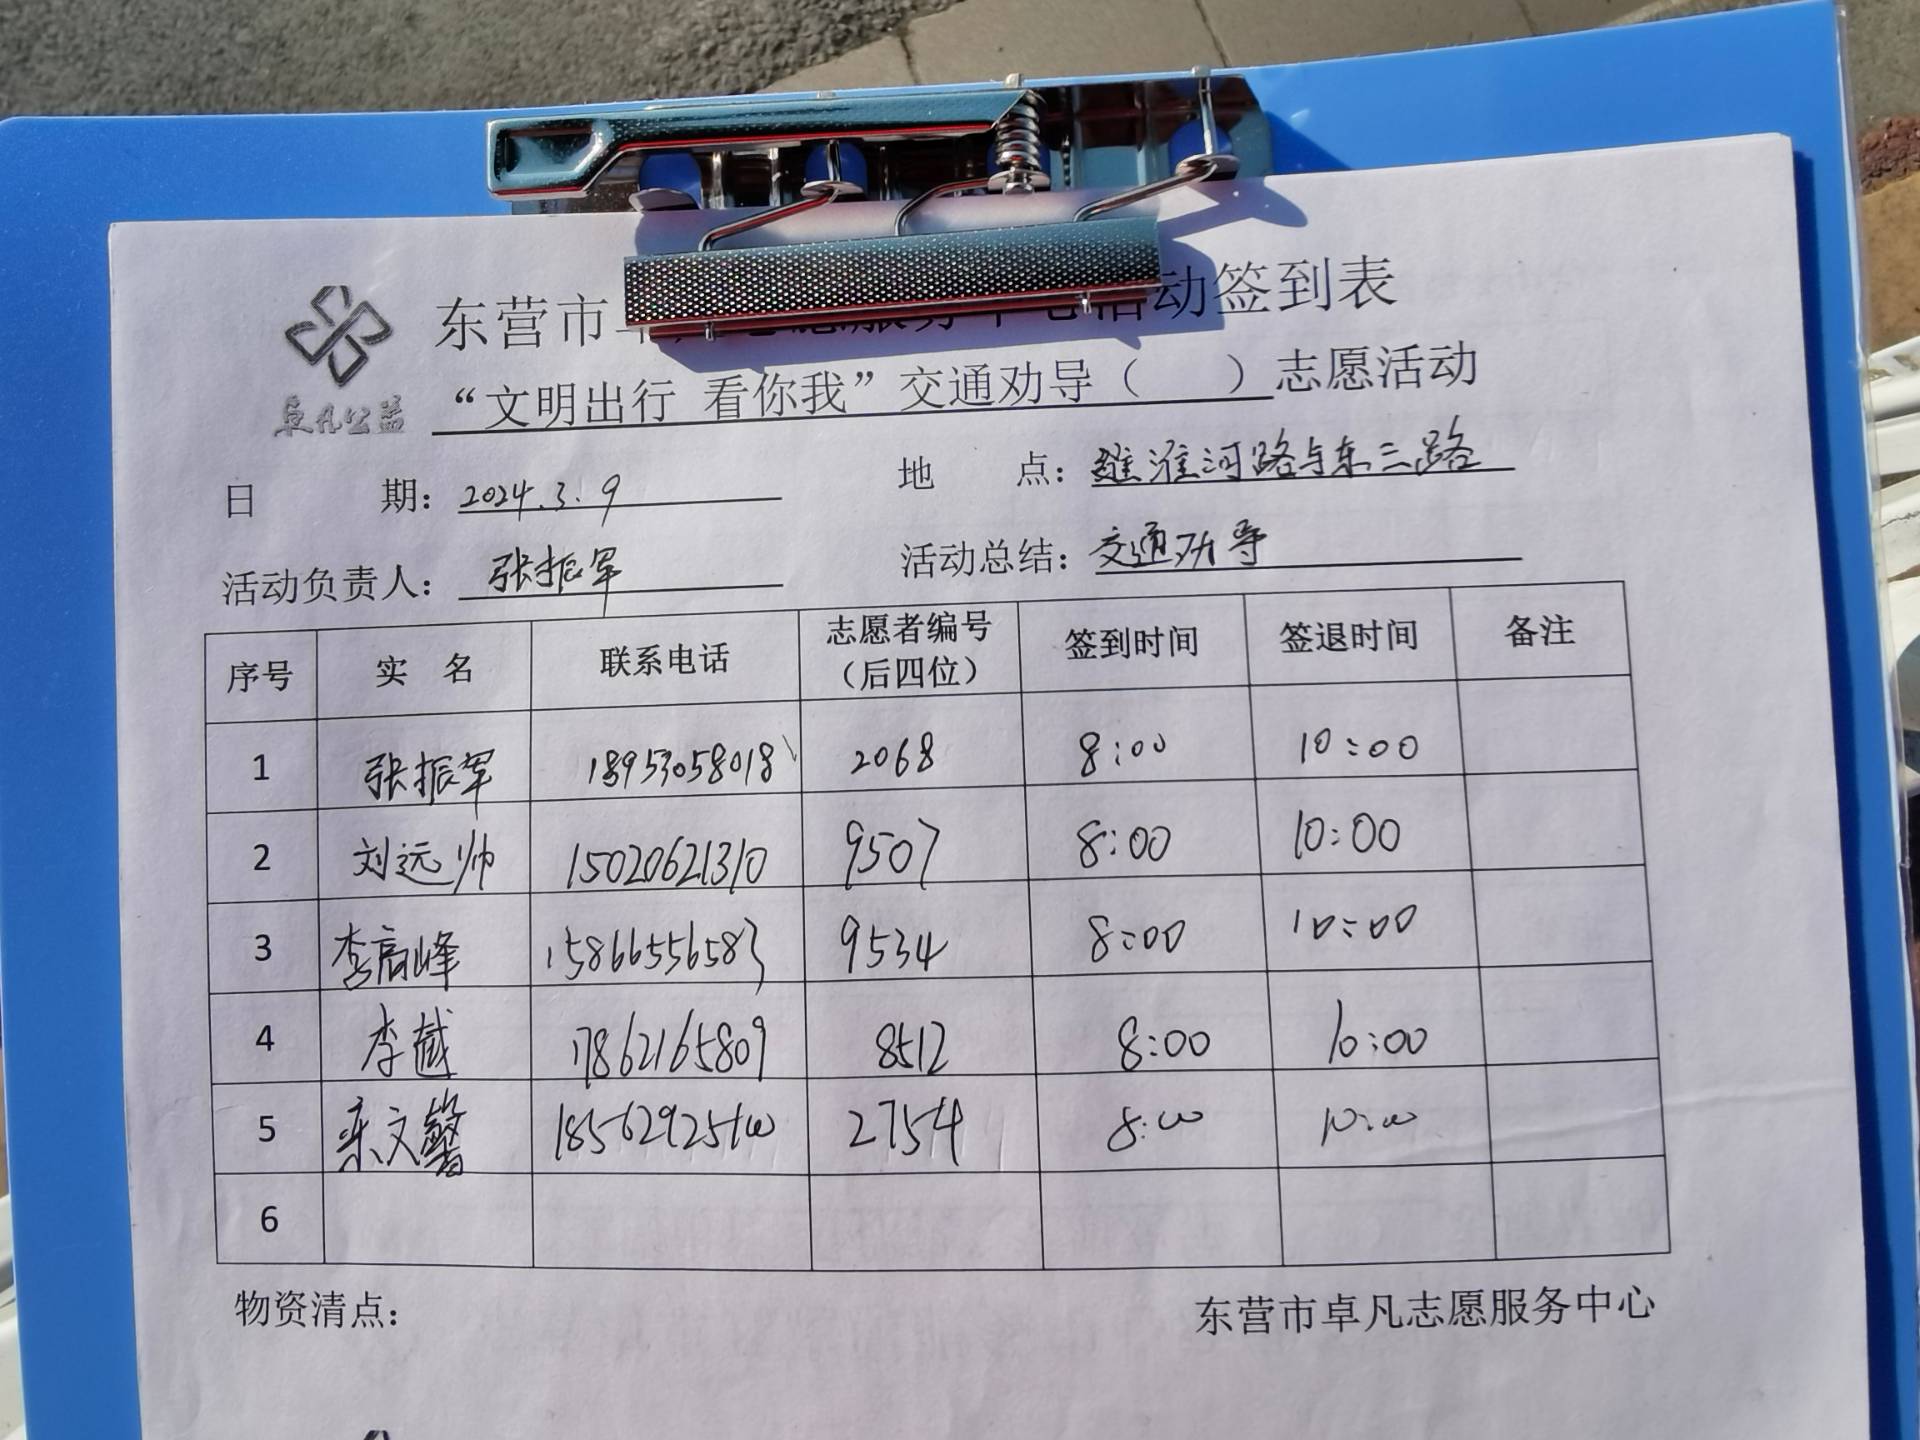 东营市卓凡志愿服务中心活动签到表
“文明出行 看你我”交通劝导（ ）志愿活动
卓凡公益
日 期：2024.3.9 地 点：淮河路与东三路
活动负责人：张振军 活动总结：交通劝导
序号 实 名 联系电话 志愿者编号（后四位） 签到时间 签退时间 备注
1 张振军 18953058018 2068 8:00 10:00
2 刘远帅 15020621310 9507 8:00 10:00
3 李高峰 15866556583 9534 8:00 10:00
4 李越 17862165809 8512 8:00 10:00
5 文 2754 8:00 10:00
6
物资清点： 东营市卓凡志愿服务中心